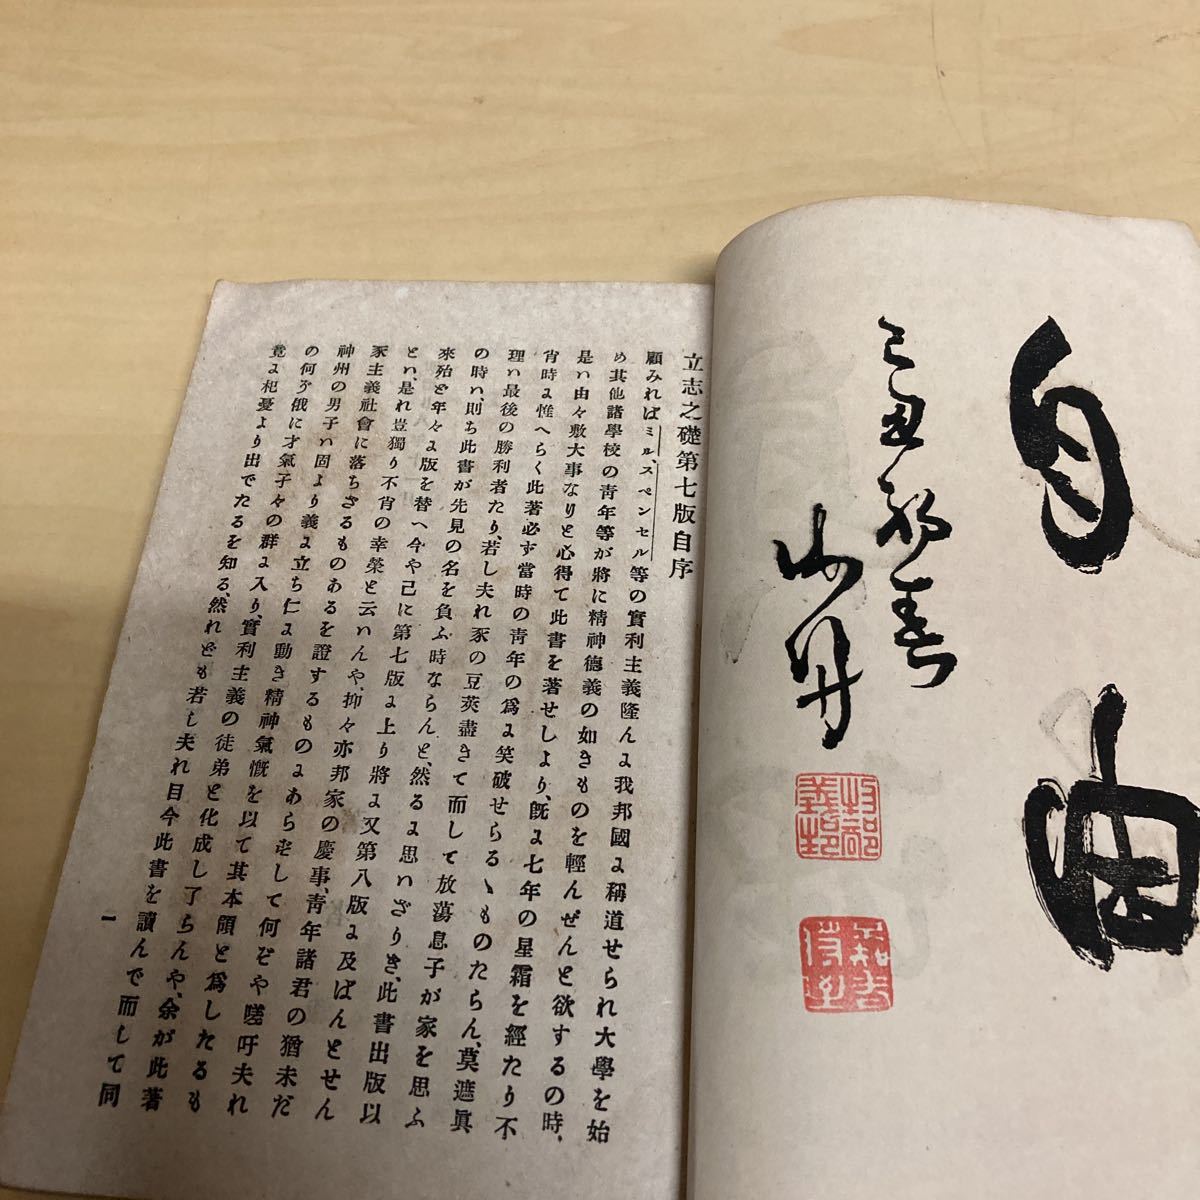 自由
己丑初春
立志之礎第七版自序
顧みればミル、スペンセル等の實利主義隆んに我邦國に稱道せられ大學を始
め其他諸學校の靑年等が將に精神德義の如きものを輕んぜんと欲するの時、
是ハ由々敷大事なりと心得て此書を著せしより、既に七年の星霜を經たり不
肖時に惟へらく此著必ず當時の靑年の爲に笑破せらるゝものたらん、莫遮眞
理ハ最後の勝利者たり、若し夫れ豕の豆莢盡きて而して放蕩息子が家を思ふ
の時ハ、則ち此書が先見の名を負ふ時ならんと、然るに思ハざりき、此書出版以
來殆ど年々に版を替へ今や已に第七版に上り將に又第八版に及ばんとせん
とハ、是れ豈獨り不肖の幸榮と云ハんや、抑々亦邦家の慶事、靑年諸君の猶未だ
豕主義社會に落ちざるものあるを證するものにあらずして何ぞや嗟吁夫れ
神州の男子ハ固より義に立ち仁に動き精神氣慨を以て其本領と爲したるも
の何ぞ俄に才氣子々の群に入り、實利主義の徒弟と化成し了らんや、余が此著
竟に杞憂より出でたるを知る、然れども若し夫れ目今此書を讀んで而して同
一